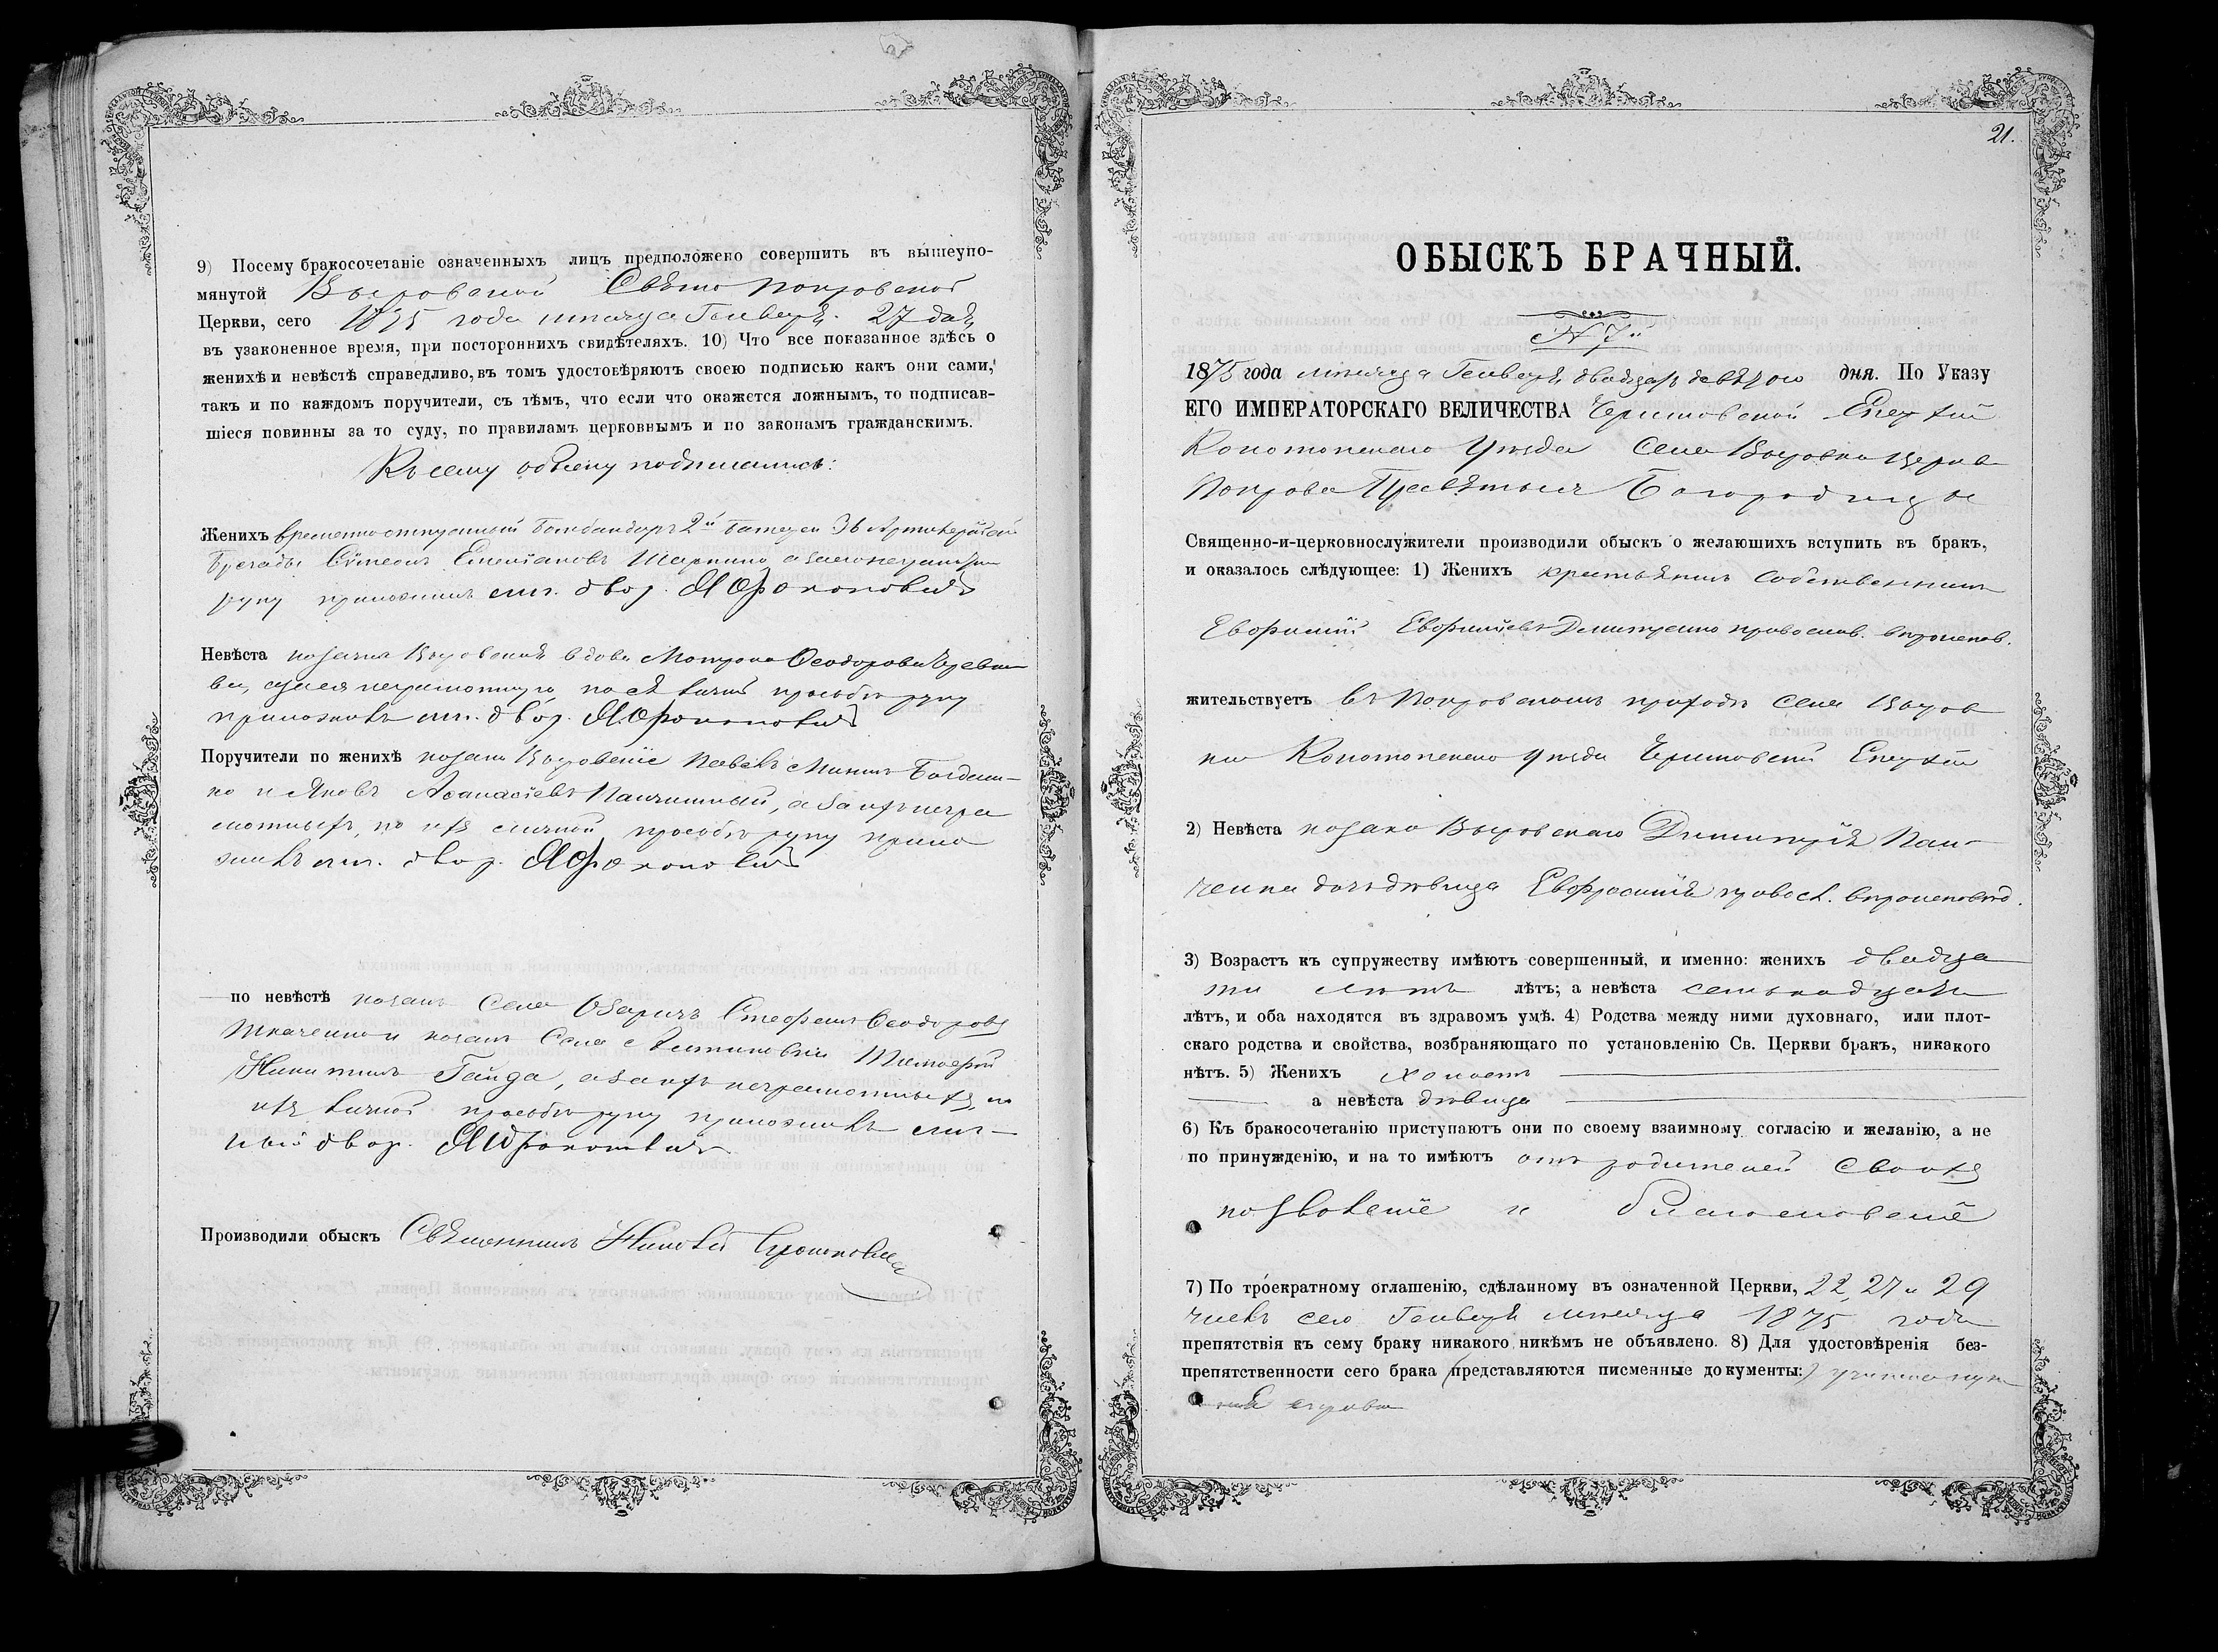 9) Посему бракосочетаніе означенныхъ лицъ предположено совершить въ вышеупо-
мянутой Вировской Свято Покровской
Церкви, сего 1875 года мѣсяца Генваря 27 дня
въ узаконенное время, при постороннихъ свидѣтеляхъ. 10) Что все показанное здѣсь о
женихѣ и невѣстѣ справедливо, въ томъ удостовѣряютъ своею подписью какъ они сами,
такъ и по каждомъ поручители, съ тѣмъ, что если что окажется ложнымъ, то подписав-
шіеся повинны за то суду, по правиламъ церковнымъ и по законамъ гражданскимъ.
Къ сему обыску подписались:
Женихъ временноотпускный Бомбандиръ 2й батареи 36 Артилерійской
Бригады Симеонъ Емельяновъ а за него неграмотн
руку приложилъ двор.
Невѣста козачка Вировская вдова Матрона Феодорова
неграмотную по ея личной просьбѣ руку
приложилъ двор.
Поручители по женихѣ козаки Вировскіе Павелъ Мининъ Богдан-
ко и Яковъ Афанасіевъ а за ихъ негра
мотныхъ, по ихъ личной просьбѣ руку прило
жилъ двор.
по невѣстѣ козакъ Села Озаричъ Стефанъ Феодоровъ
Ткаченко и козакъ Села Тимофей
Никитинъ Гайда, а за ихъ неграмотныхъ, по
ихъ личной просьбѣ руку приложилъ
двор.
Производили обыскъ Священникъ Николай
21.
ОБЫСКЪ БРАЧНЫЙ.
N 7й
1875 года мѣсяца Генваря двадцать девятого дня. По Указу
ЕГО ИМПЕРАТОРСКАГО ВЕЛИЧЕСТВА Черниговской Епархіи
Конотопскаго Уѣзда Села Вировки церкви
Покрова Пресвятыя Богородицы
Священно-и-церковнослужители производили обыскъ о желающихъ вступить въ бракъ,
и оказалось слѣдующее: 1) Женихъ крестьянинъ собственникъ
Евфимій Евфиміевъ Димитренко православ. вѣроисповѣд.
жительствуетъ въ Покровскомъ приходѣ села Виров
ки Конотопскаго уѣзда Черниговской Епархіи
2) Невѣста козака Вировскаго Димитрія Пан-
ченка дочь дѣвица Евфросинія правосл. вѣроисповѣд.
3) Возрастъ къ супружеству имѣютъ совершенный, и именно: женихъ двадца
ти лѣтъ лѣтъ; а невѣста семьнадцать
лѣтъ, и оба находятся въ здравомъ умѣ. 4) Родства между ними духовнаго, или плот-
скаго родства и свойства, возбраняющаго по установленію Св. Церкви бракъ, никакого
нѣтъ. 5) Женихъ холостъ
а невѣста дѣвица
6) Къ бракосочетанію приступаютъ они по своему взаимному согласію и желанію, а не
по принужденію, и на то имѣютъ отъ родителей своихъ
позволеніе и благословеніе
7) По троекратному оглашенію, сдѣланному въ означенной Церкви, 22, 27 и 29
числъ сего Генваря мѣсяца 1875 года
препятствія къ сему браку никакого никѣмъ не объявлено. 8) Для удостовѣренія без-
препятственности сего брака представляются писменные документы: